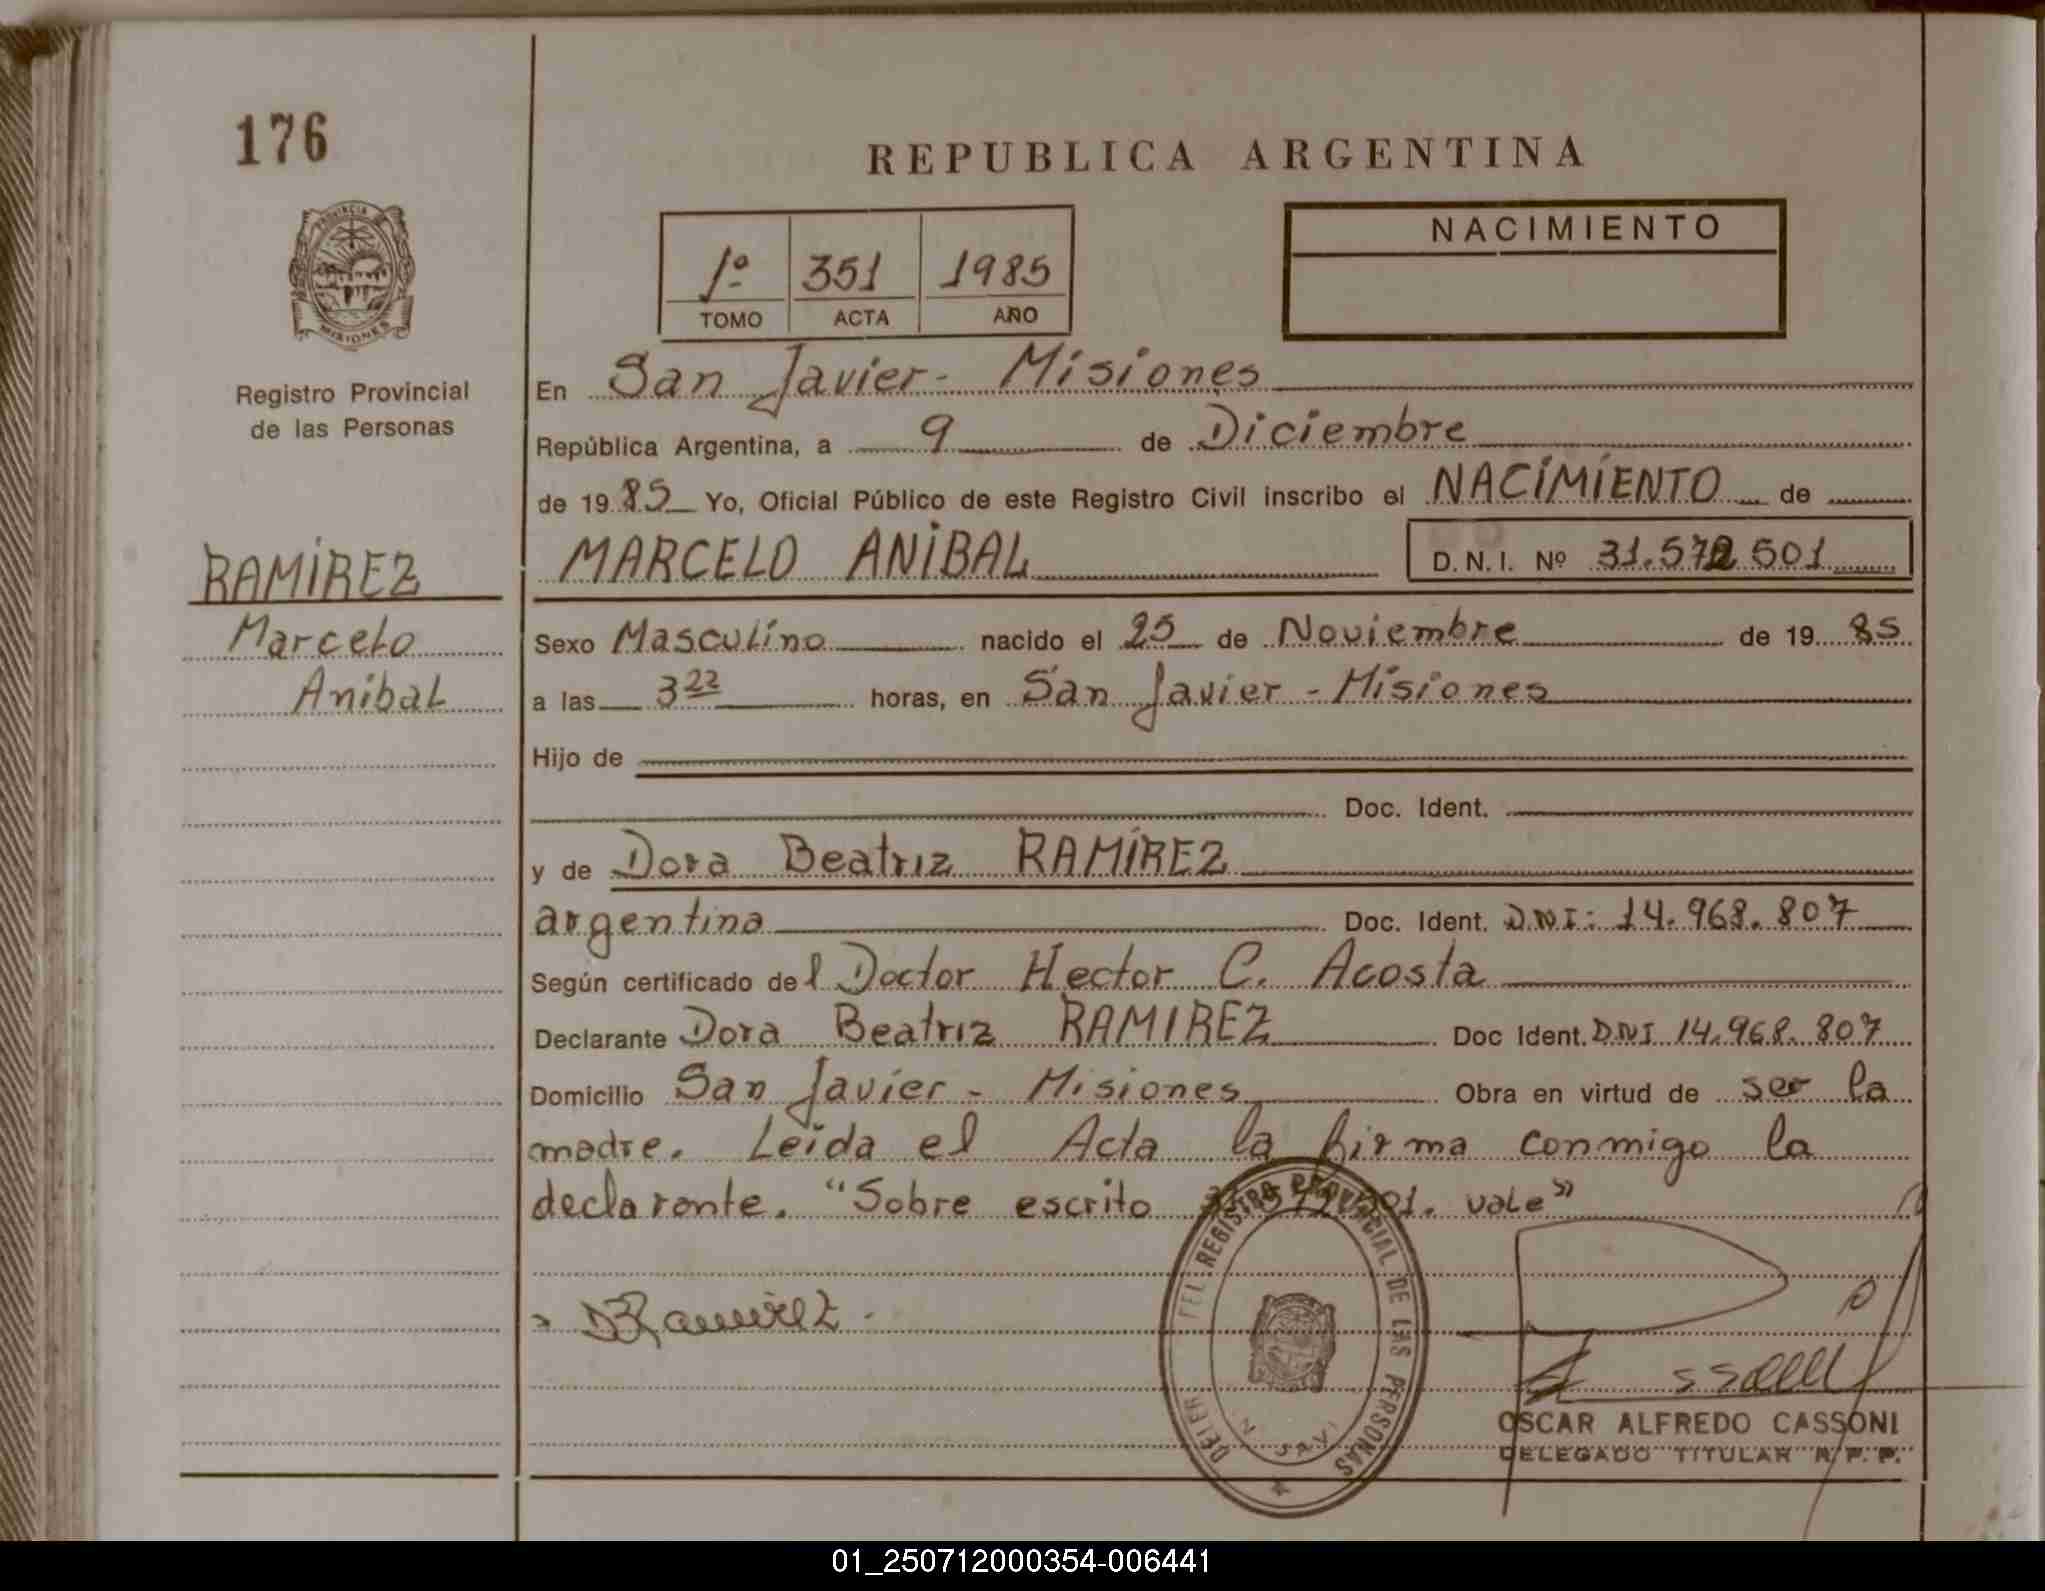 176
REPUBLICA ARGENTINA
PROVINCIA DE
MISIONES
Registro Provincial
de las Personas
1º 351 1985
TOMO ACTA AÑO
NACIMIENTO
En San Javier - Misiones
República Argentina, a 9 de Diciembre
de 1985 Yo, Oficial Público de este Registro Civil inscribo el NACIMIENTO de
RAMIREZ
Marcelo
Anibal
MARCELO ANIBAL D.N.I. Nº 31.572.501
Sexo Masculino nacido el 25 de Noviembre de 1985
a las 3 22 horas, en San Javier - Misiones
Hijo de
Doc. Ident.
y de Dora Beatriz RAMÍREZ
argentina Doc. Ident. D.N.I: 14.968.807
Según certificado del Doctor Hector C. Acosta
Declarante Dora Beatriz RAMIREZ Doc Ident. DNI 14.968.807
Domicilio San Javier - Misiones Obra en virtud de ser la
madre. Leida el Acta la firma conmigo la
declarante. "Sobre escrito vale"
DBRamirez
REGISTRO PROVINCIAL DE LAS PERSONAS
OSCAR ALFREDO CASSONI
DELEGADO TITULAR R.P.P.
01_250712000354-006441